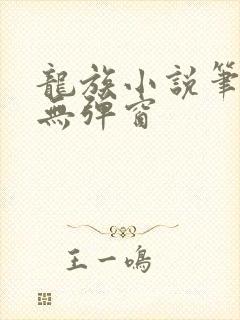 龍族小說筆
無彈窗
王一鳴